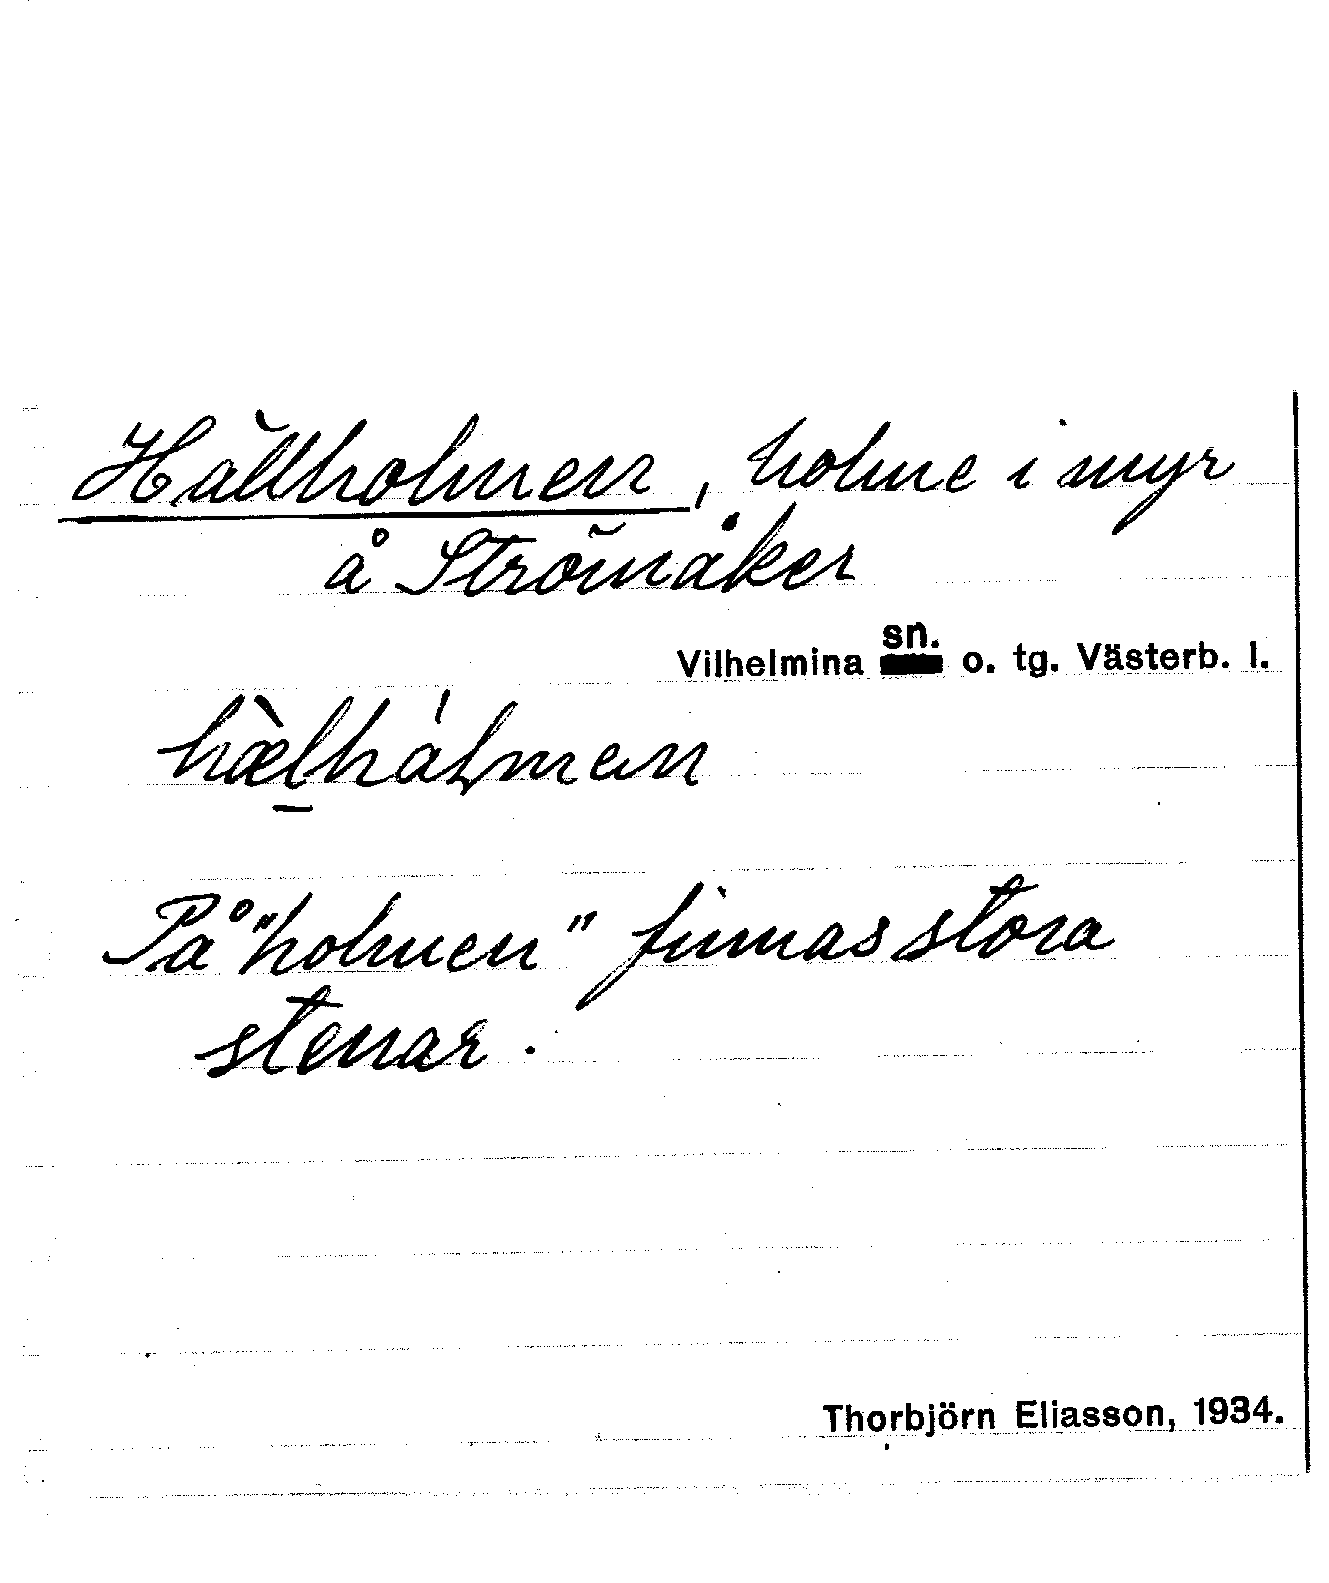 Hällholmen, holme i myr
å Strömåker
Vilhelmina sn. o. tg. Västerb. l.
hæ̀l̲hálmen
På "holmen" finnas stora
stenar.
Thorbjörn Eliasson, 1934.